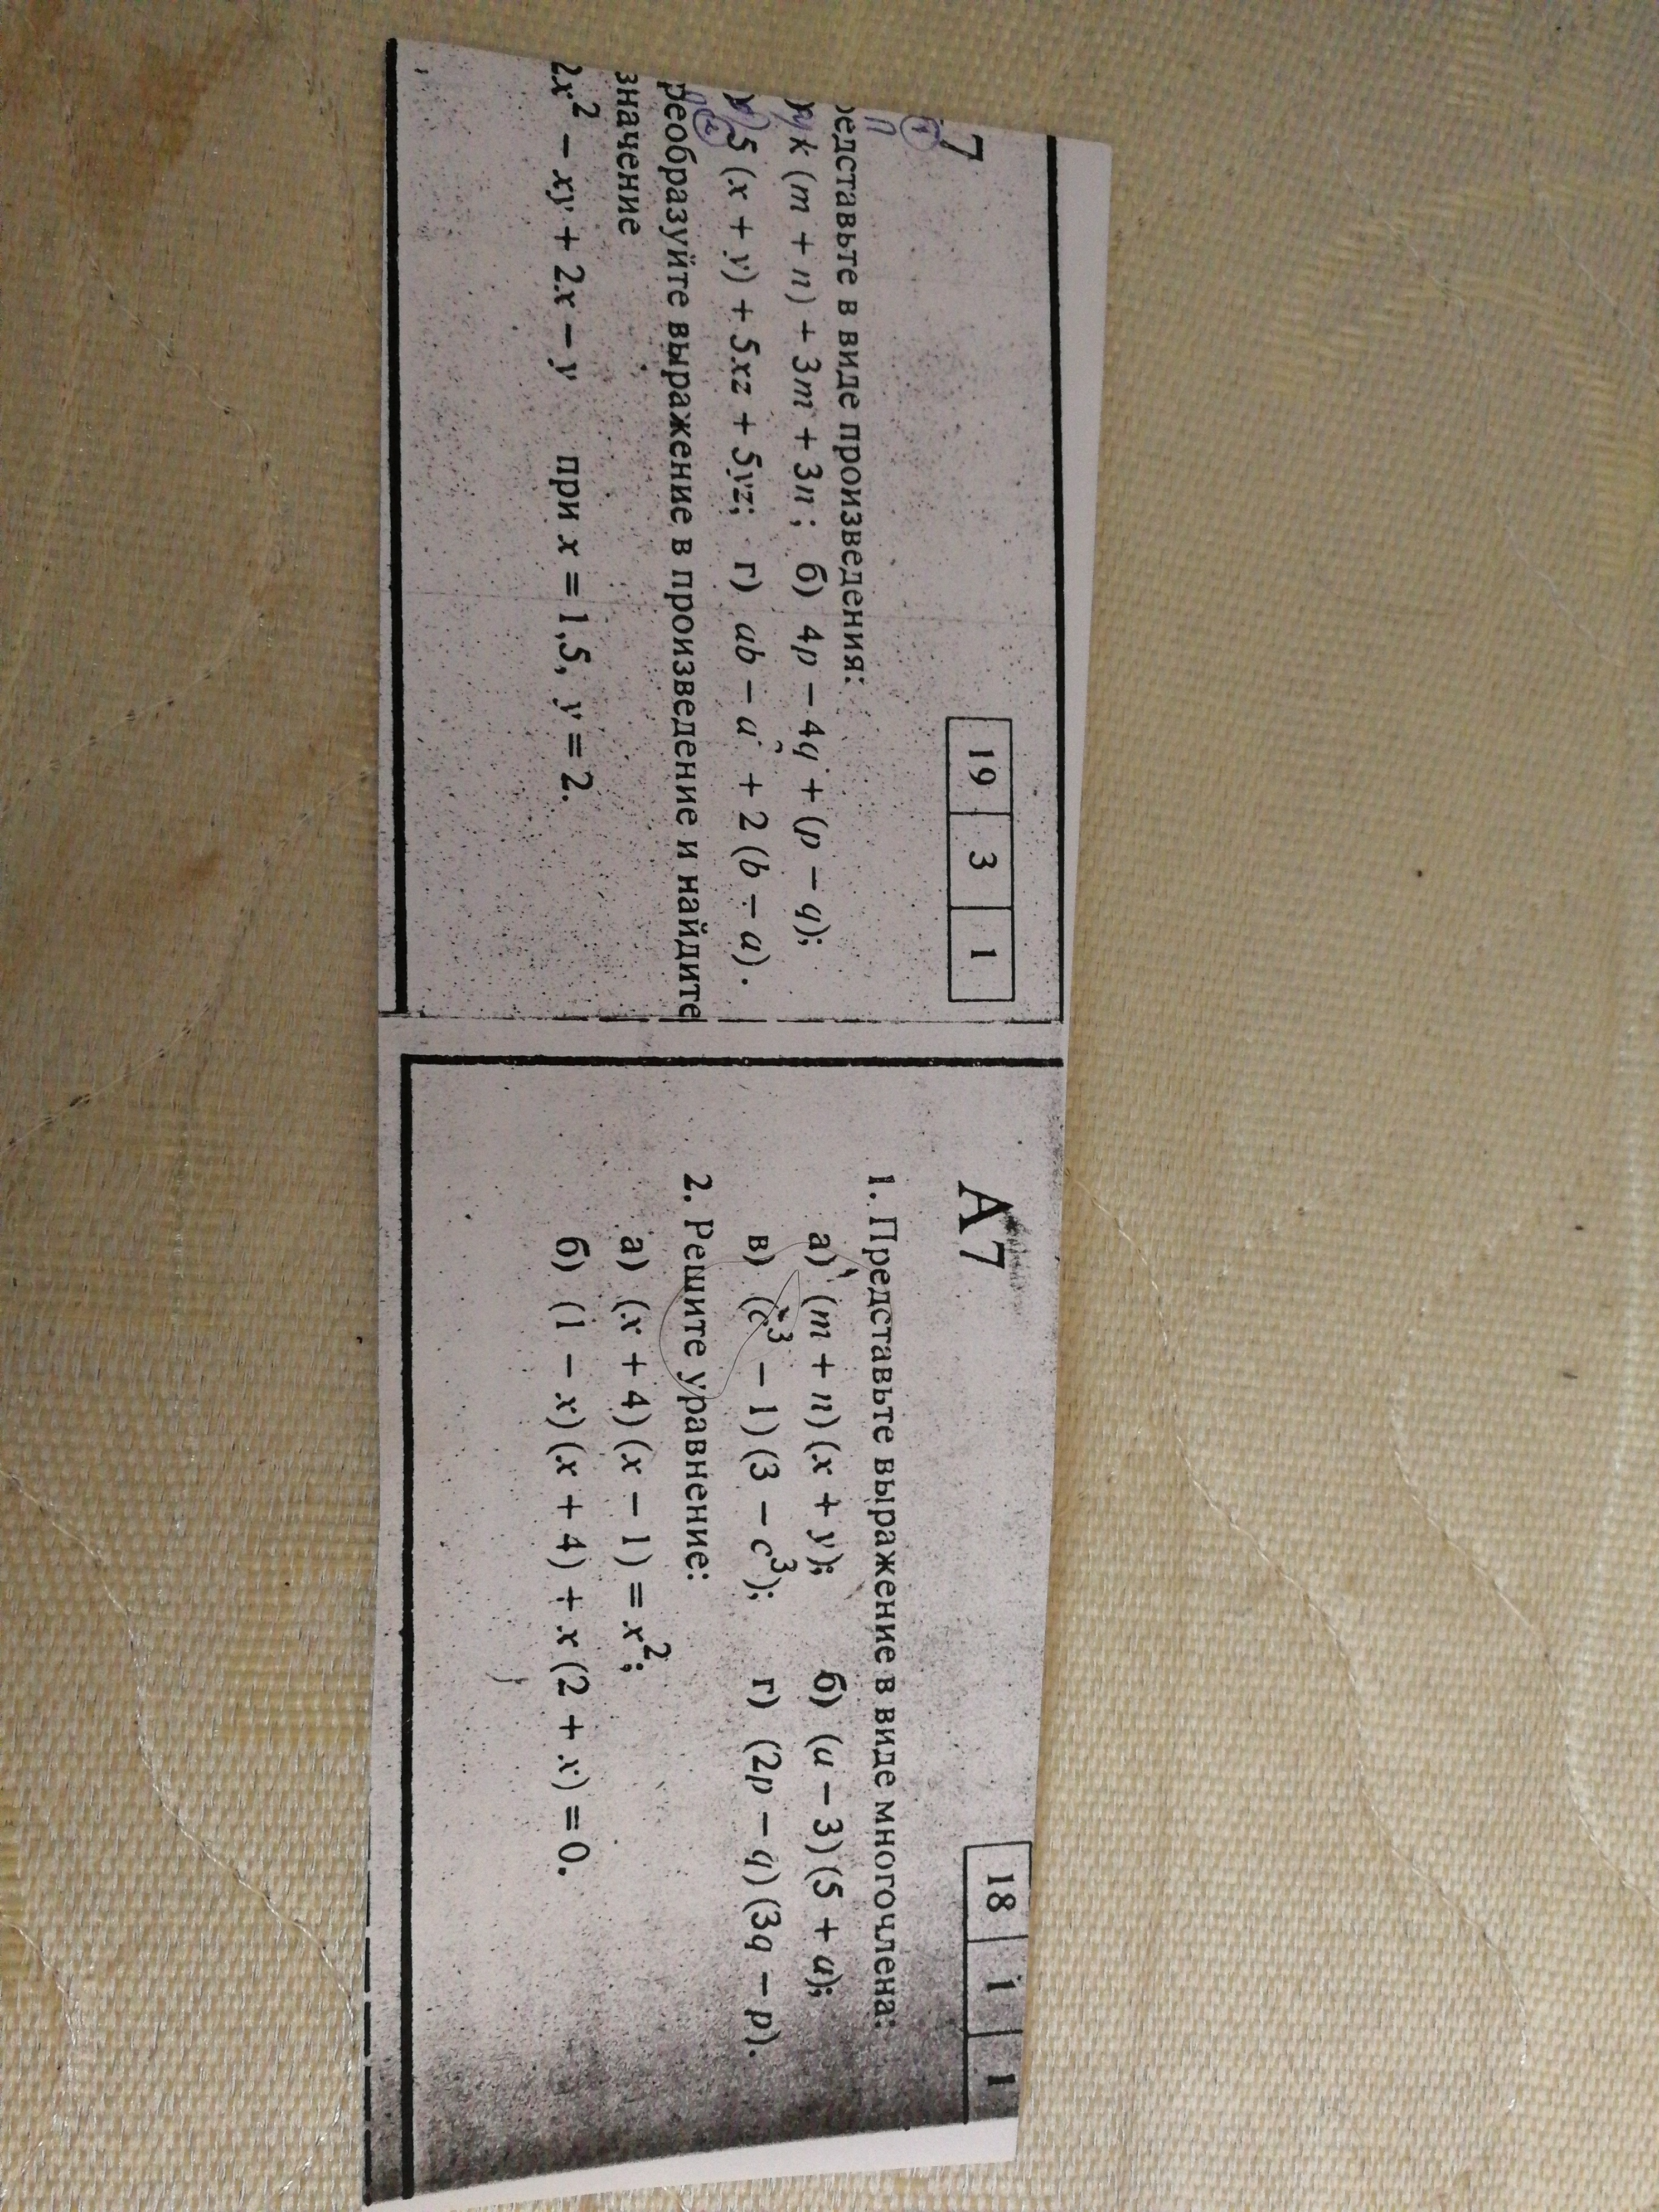 7
19 3 1
редставьте в виде произведения:
k (m + n) + 3m + 3n; б) 4p − 4q + (p − q);
5 (x + y) + 5xz + 5yz; г) ab − a² + 2 (b − a).
реобразуйте выражение в произведение и найдите
значение
2x² − xy + 2x − y при x = 1,5, y = 2.
А7
18 1 1
1. Представьте выражение в виде многочлена:
а) (m + n)(x + y); б) (a − 3)(5 + a);
в) (c³ − 1)(3 − c³); г) (2p − q)(3q − p).
2. Решите уравнение:
а) (x + 4)(x − 1) = x²;
б) (1 − x)(x + 4) + x(2 + x) = 0.